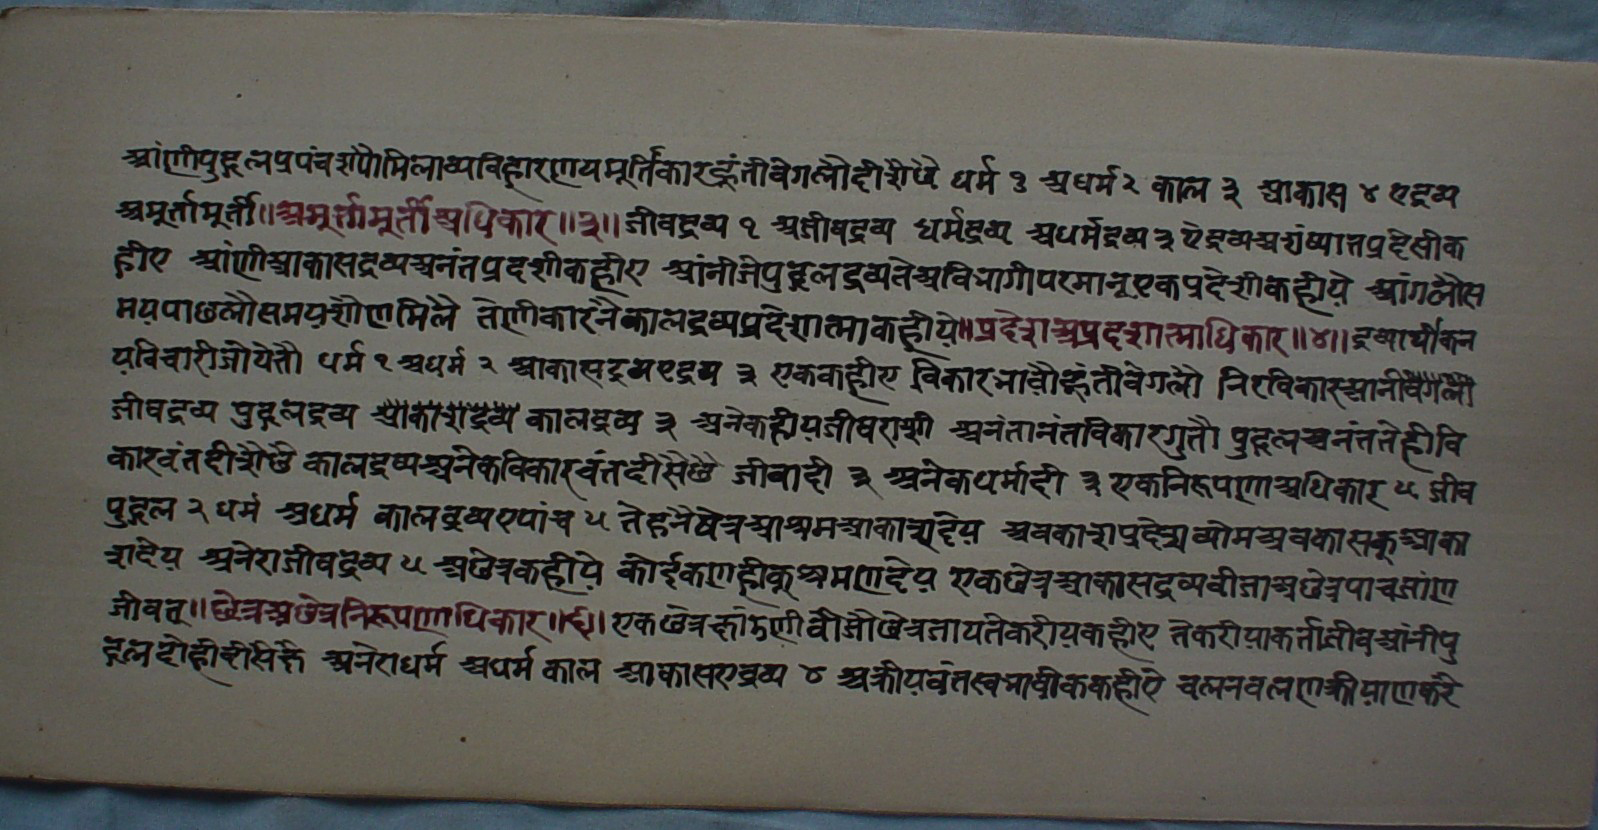 आंणीपुद्गलप्रपंचशंपौमिलाव्यविहारणयमूर्तिकारहूंतीवेगलौदीशैछै धर्म १ अधर्म २ काल ३ आकास ४ एद्रव्य
अमूर्तामूर्ती॥अमूर्तामूर्तीअधिकार॥३॥जीवद्रव्य १ अजीवद्रव्य धर्मद्रव्य अधर्मद्रव्य ३ ऐद्रव्यअशंष्यातप्रदेसीक
हीए आंणीआकासद्रव्यअनंतप्रदशीकहीए आंनीजेपुद्गलद्रव्यतेअविभागीपरमानूएकप्रदेशीकहीये आंगलौस
मयपाछलौसमयशौणमिलै तेणीकारनैकालद्रव्यप्रदेशात्माकहीये॥प्रदेशअप्रदशात्माधिकार॥४॥द्रव्यार्थीकन
यविचारीजोयेतौ धर्म १ अधर्म २ आकासद्रव्यएद्रव्य ३ एककहीए विकारभावौहूंतीवेगलौ निरविकारस्थानीवेगलौ
जीवद्रव्य पुद्गलद्रव्य आकाशद्रव्य कालद्रव्य ३ अनेकहीयजीवराशी अनंतानंतविकारगुतौ पुद्गलअनंततेहीवि
कारवंतदीशैछै कालद्रव्यअनेकविकारवंतदीसैछै जीवादी ३ अनेकधर्मादी ३ एकनिरूपणअधिकार ५ जीव
पुद्गल २ धर्म अधर्म कालद्रव्यएपांच ५ तेहनैषेत्रआश्रमआकाशदेय अवकाशप्रदेशव्योमअवकासकूआका
शदेय अनेराजीवद्रव्य ५ अछेत्रकहीये कोईकाणहीकूश्रमणदेय एकछेत्रआकासद्रव्यवीजाअछेत्रपाचजांण
जीवत्॥छेत्रअछेत्रनिरूपणाधिकार॥६॥एकछेत्र वीजौछेत्रजायतेकरीयकहीए तेकरीयाकर्ताजीवआंनीपु
द्गलदोहीदीसैहै अनेराधर्म अधर्म काल आकासएद्रव्य ४ अक्रीयवंतस्वभावीककहीऐ चलनवलणक्रीयाणकरे